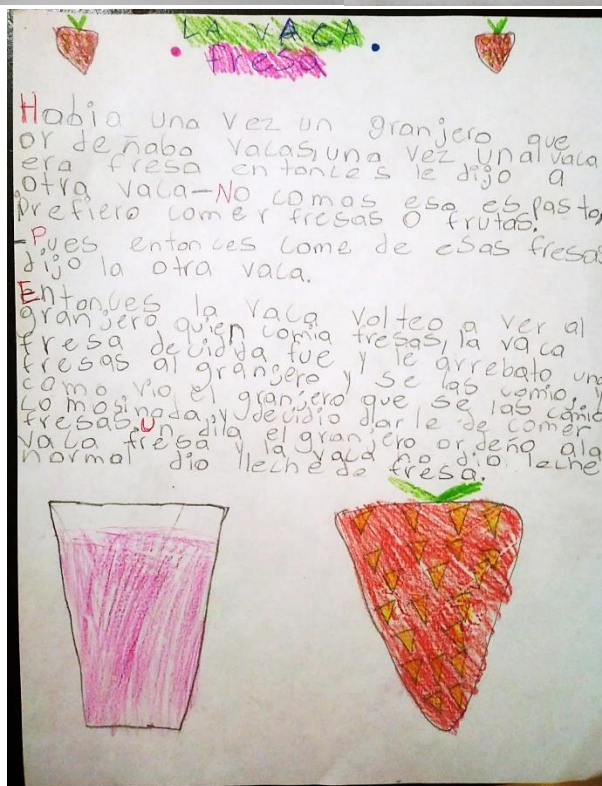 LA VACA
fresa
Habia una vez un granjero que
or deñaba vacas, una vez una vaca
era fresa entonces le dijo a
otra vaca-No comas eso es pasto,
prefiero comer fresas o frutas.
-Pues entonces come de esas fresas
dijo la otra vaca.
Entonces la vaca volteo a ver al
granjero quien comia fresas, la vaca
fresa decidida fue y le arrebato una
fresas al granjero y se las comio, y
como vio el granjero que se las comio
como si nada, y decidio darle de comer
fresas. Un dia el granjero ordeño ala
vaca fresa y la vaca no dio leche
normal dio lleche de fresa.